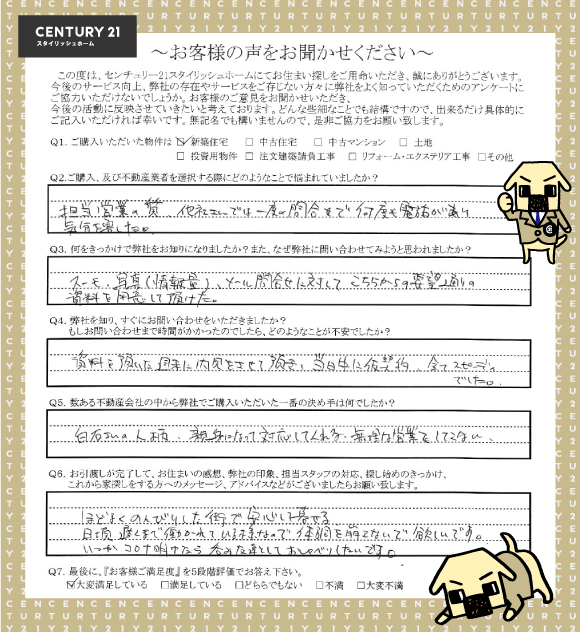 CENTURY 21
スタイリッシュホーム
～お客様の声をお聞かせください～
この度は、センチュリー21スタイリッシュホームにてお住まい探しをご用命いただき、誠にありがとうございます。
今後のサービス向上、弊社の存在やサービスをご存じない方々に弊社をよく知っていただくためのアンケートに
ご協力いただけないでしょうか。お客様のご意見をお聞かせいただき、
今後の活動に反映させていきたいと考えております。どんな些細なことでも結構ですので、出来るだけ具体的に
ご記入いただければ幸いです。無記名でも構いませんので、是非ご協力をお願い致します。
Q1. ご購入いただいた物件は ☑新築住宅 □ 中古住宅 □ 中古マンション □ 土地
□ 投資用物件 □ 注文建築請負工事 □ リフォーム・エクステリア工事 □その他
Q2.ご購入、及び不動産業者を選択する際にどのようなことで悩まれていましたか？
担当営業の質 他社さんでは一度の問合せで何度も電話があり
Q3. 何をきっかけで弊社をお知りになりましたか？また、なぜ弊社に問い合わせてみようと思われましたか？
スーモ、写真(情報量)、メール問合せに対して、こちらからの要望通りの
資料を用意して頂けた。
Q4. 弊社を知り、すぐにお問い合わせをいただきましたか？
もしお問い合わせまで時間がかかったのでしたら、どのようなことが不安でしたか？
資料を頂いた週末に内見をさせて頂き、当日中に仮契約、全てスピーディ
でした。
Q5. 数ある不動産会社の中から弊社でご購入いただいた一番の決め手は何でしたか？
白石さんの人柄、親身になって対応してくれる、無理な営業をしてこない、
Q6. お引渡しが完了して、お住まいの感想、弊社の印象、担当スタッフの対応、探し始めのきっかけ、
これから家探しをする方へのメッセージ、アドバイスなどがございましたらお願い致します。
ほどよくのんびりした街で安心して暮せる
日頃遅くまで働かれていますなので体調を崩さないで欲しいです。
いつかコロナ明けたら しておしゃべりしたいです。
Q7. 最後に、『お客様ご満足度』を5段階評価でお答え下さい。
☑大変満足している □満足している □どちらでもない □不満 □大変不満